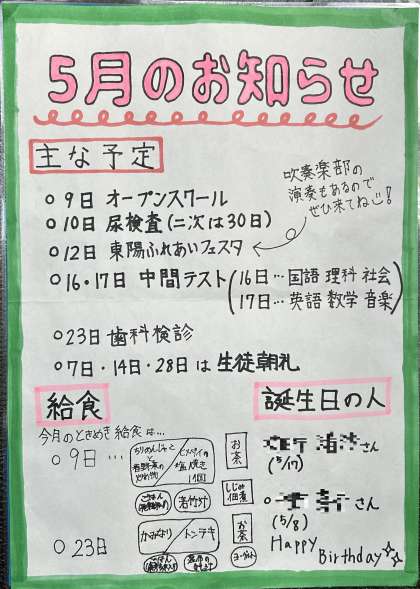 5月のお知らせ
主な予定
○9日 オープンスクール
○10日 尿検査(二次は30日)
吹奏楽部の
演奏もあるので
ぜひ来てね!
○12日 東陽ふれあいフェスタ
○16・17日 中間テスト
16日…国語 理科 社会
17日…英語 数学 音楽
○23日 歯科検診
○7日・14日・28日は 生徒朝礼
給食
今月のときめき給食は…
○9日 …
ちりめんじゃこ
と
塩焼き
1個
お茶
しじみ
佃煮
若竹汁
○23日
かみなり
トンテキ
お茶
ヨーグルト
誕生日の人
さん
(5/17)
さん
(5/8)
Happy
Birthday